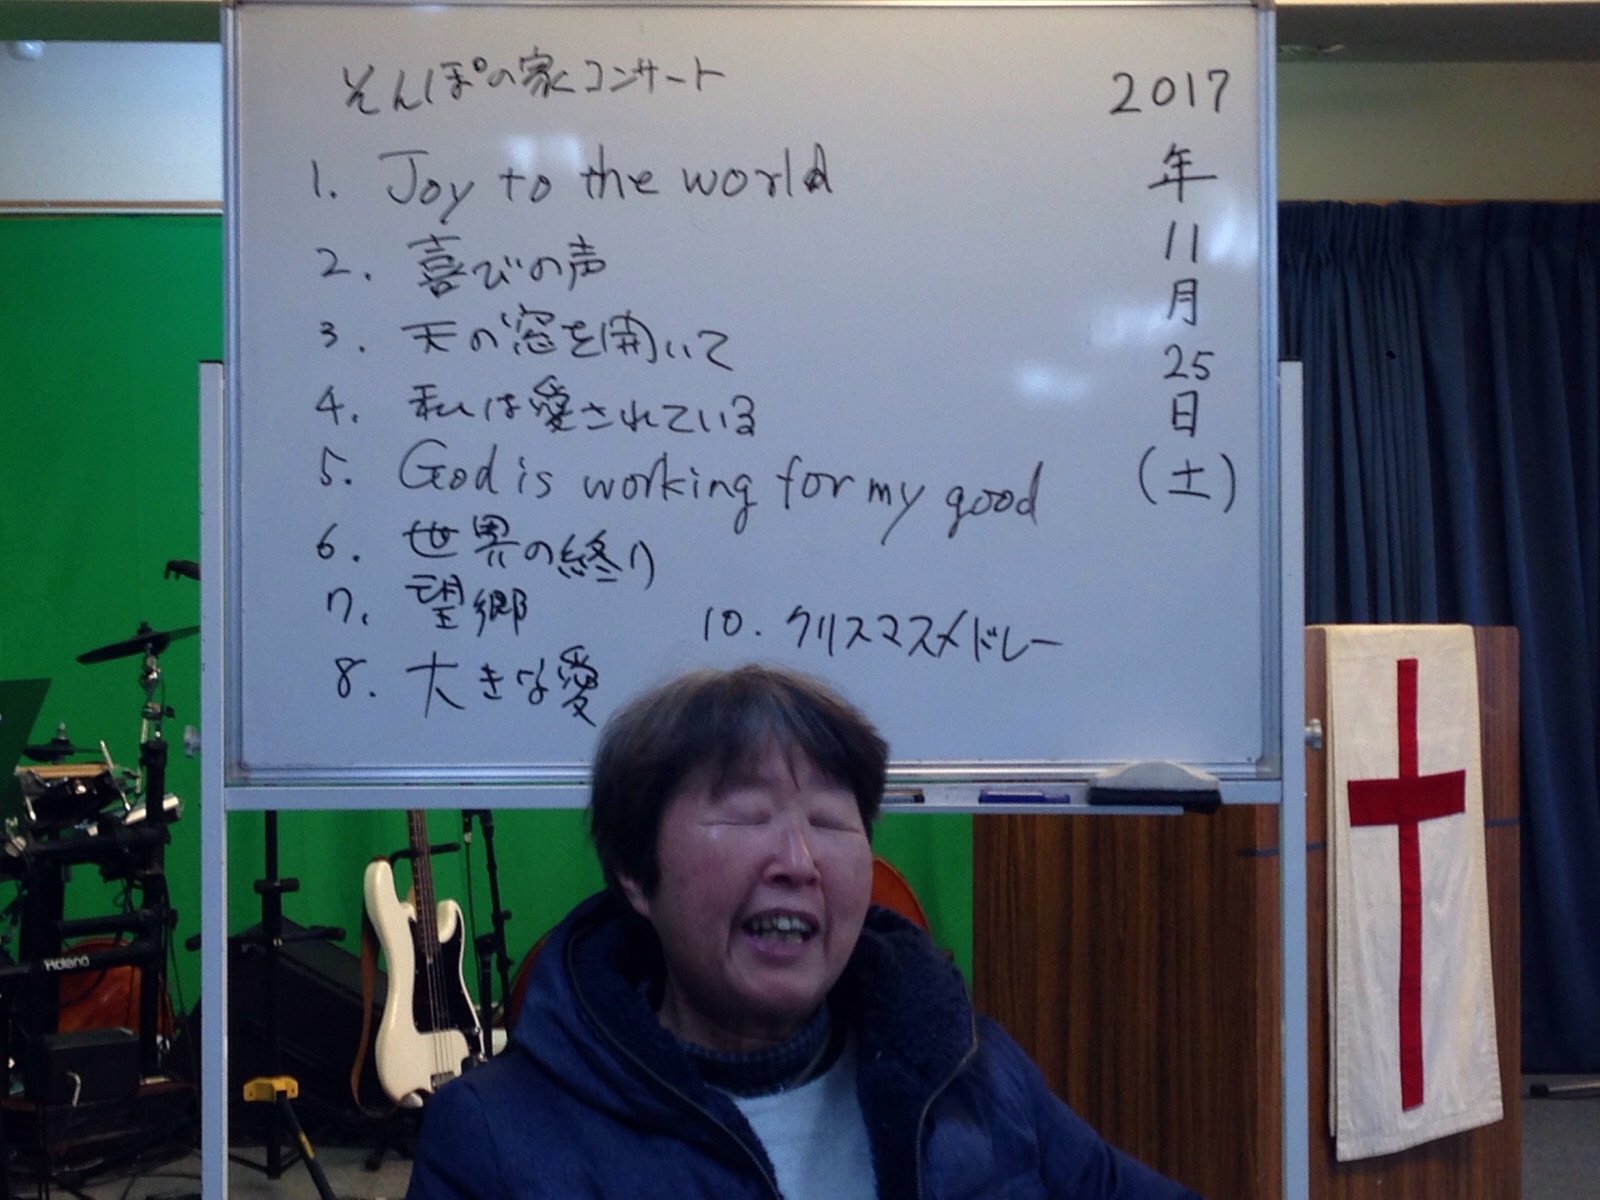 そんぽの家コンサート
1. Joy to the world
2. 喜びの声
3. 天の窓を開いて
4. 私は愛されている
5. God is working for my good
6. 世界の終り
7. 望郷
8. 大きな愛
10. クリスマスメドレー
2017
年
11
月
25
日
(土)
Roland